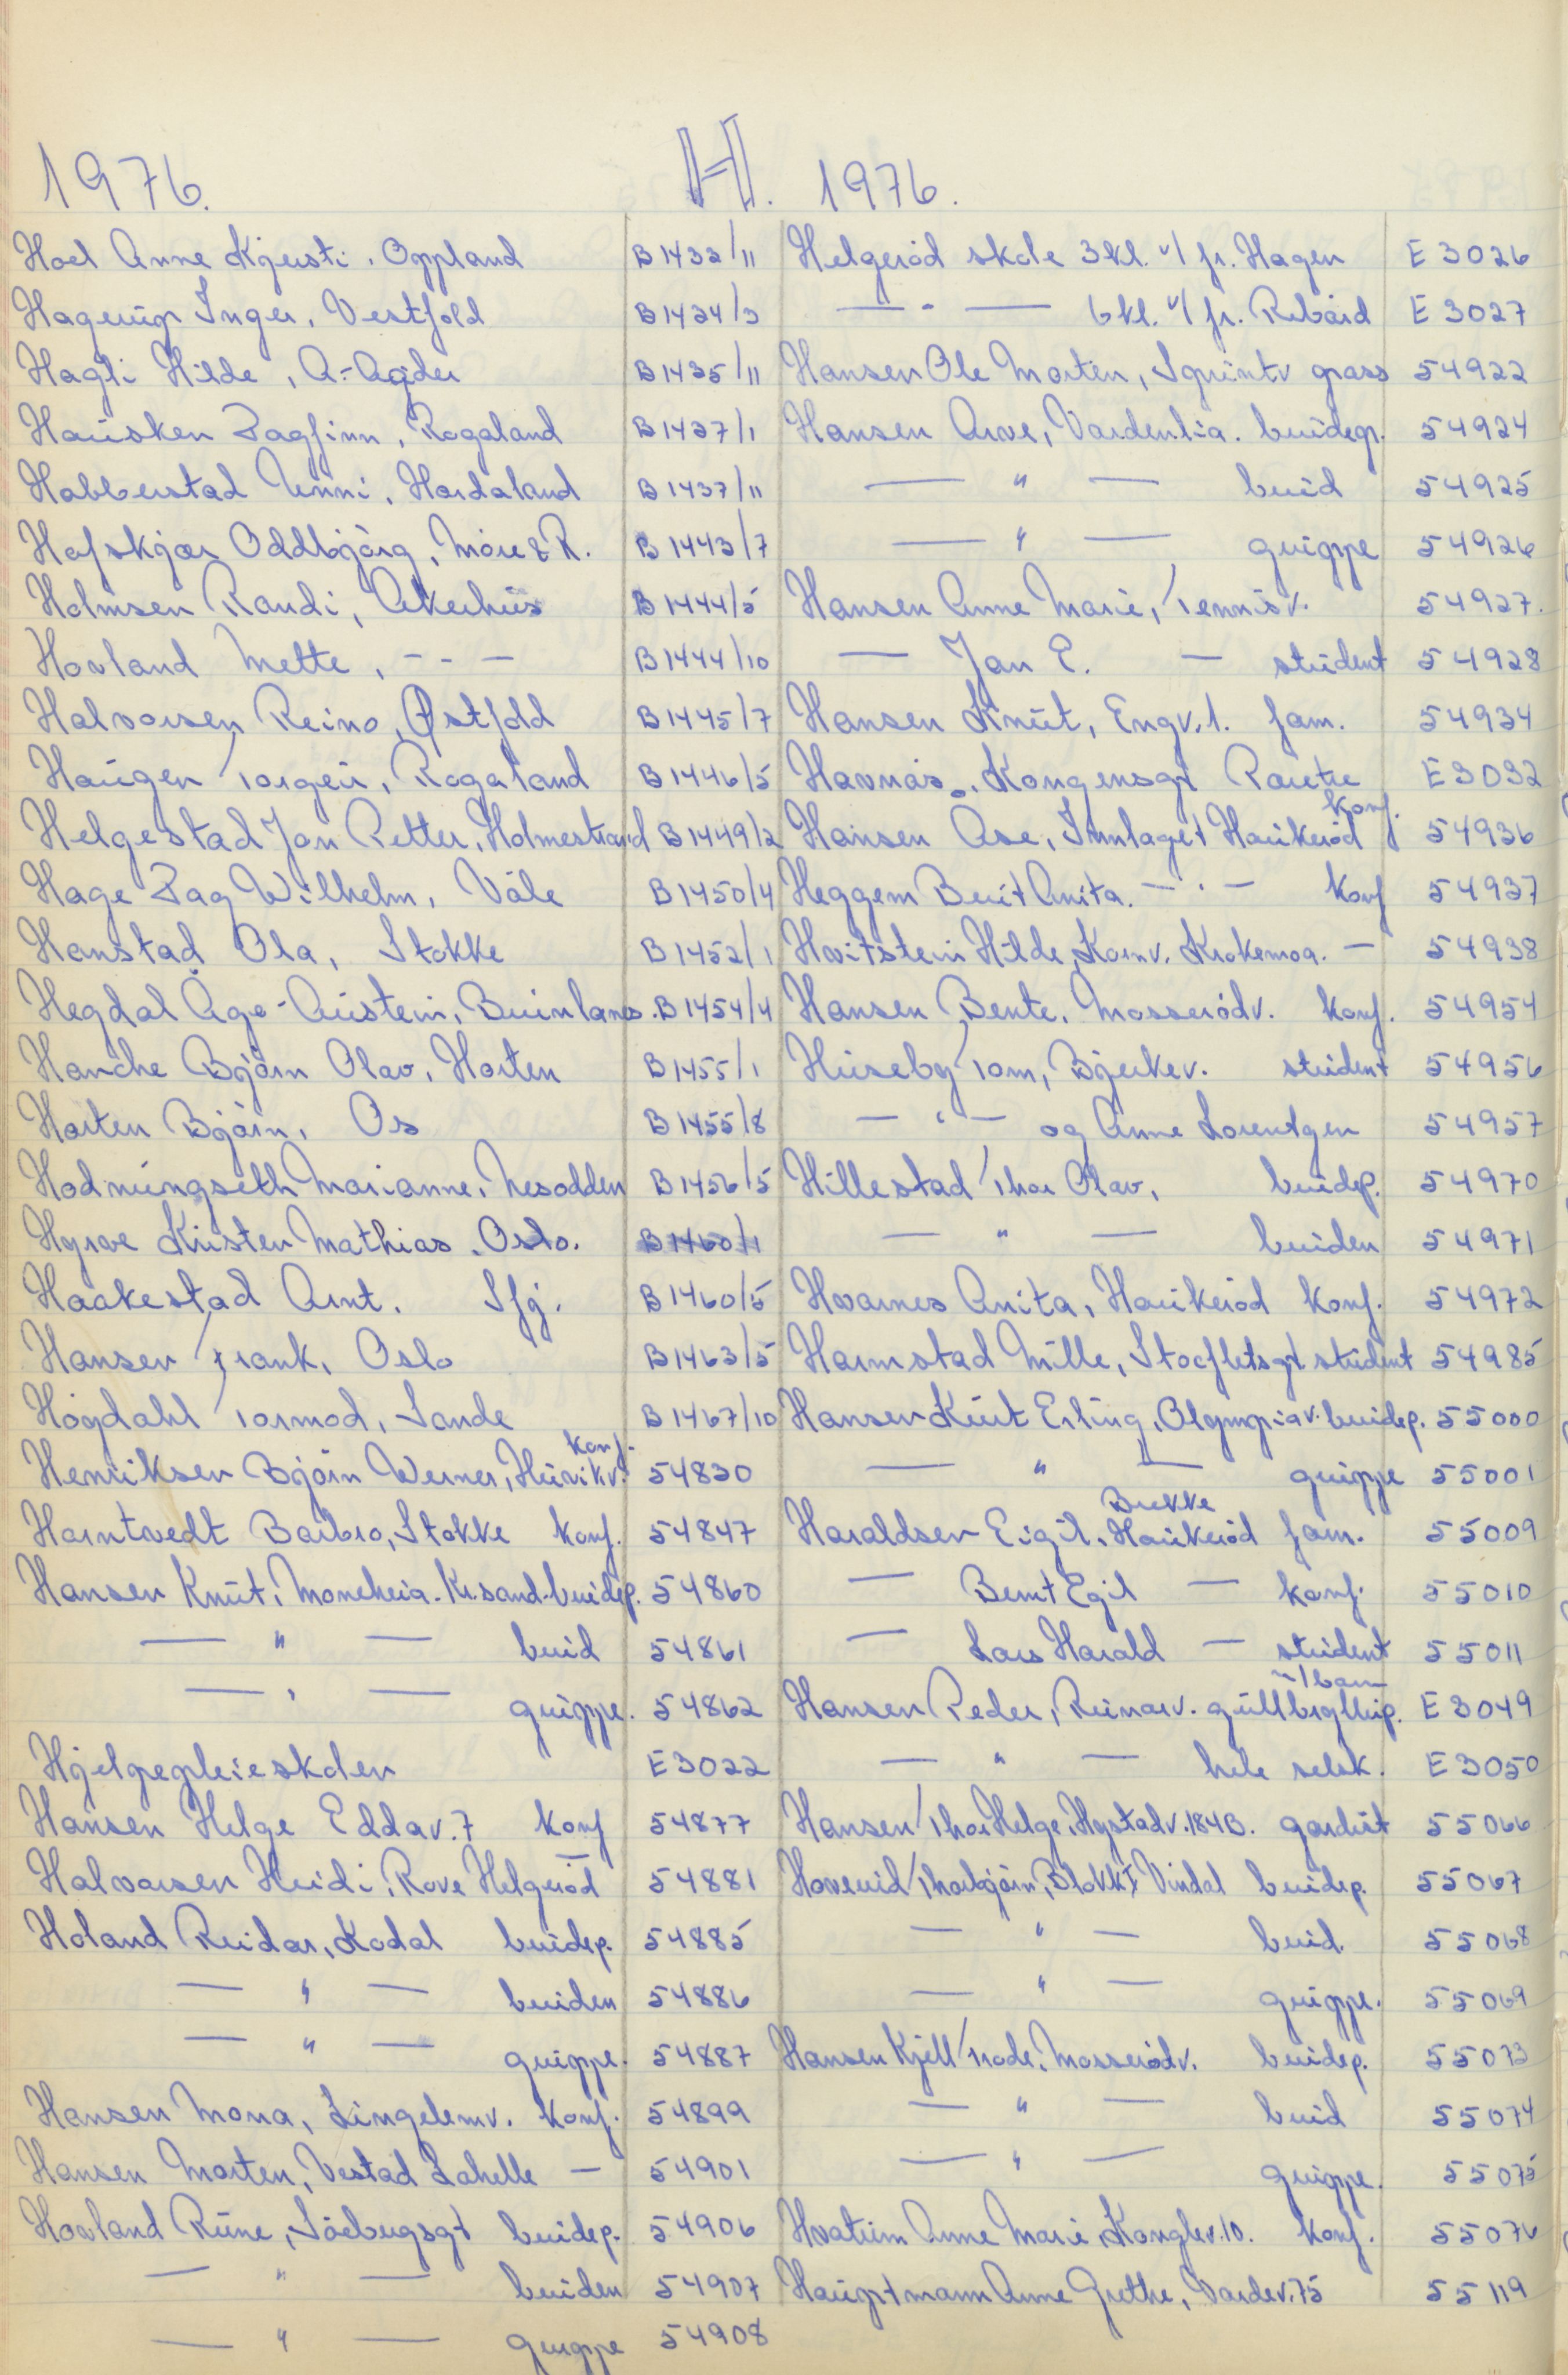 1976. H. 1976.
Hoel Anne Kjersti, Oppland B1432/11
Hagerup Inger, Vestfold B1434/3
Hagli Hilde, A-Agder B1435/11
Hausken Dagfinn, Rogaland B1437/1
Habberstad Unni, Hordaland B1437/11
Hafskjær Oddbjörg, Möre & R. B1443/7
Holmsen Randi, Akerhus B1444/5
Hovland Mette, - - - B1444/10
Halvorsen Reino, Østfold B1445/7
Haugen Torgeir, Rogaland B1446/5
Helgestad Jan Petter, Holmestrand B1449/2
Hage Dag Wilhelm, Våle B1450/4
Hanstad Ola, Stokke B1452/1
Hegdal Åge-Austein, B1454/4
Hanche Björn Olav, Horten B1455/1
Horten Björn, Os B1455/8
Hodnungseth Marianne, Nesodden B1456/5
Hyrve Kristen Mathias, Oslo. B1460/1
Haakestad Arnt. Sfj. B1460/5
Hansen Frank, Oslo B1463/5
Högdahl Tormod, Sande B1467/10
Henriksen Björn Werner, konf. 54830
Harntvedt Barbro, Stokke konf. 54847
Hansen Knut, Moneheia. Kr.sand. bruidep. 54860
— " — bruid 54861
— " — gruppe. 54862
Hjelpepleieskolen E3022
Hansen Helge Eddav. 7 konf 54877
Halvorsen Heidi, Rove Helgeröd — 54881
Holand Reidar, Kodal bruidep. 54885
— " — bruiden 54886
— " — gruppe. 54887
Hansen Mona, Lingelemv. konf. 54899
Hansen Morten, Vestad Lahelle — 54901
Hovland Rune, Söebergsgt bruidep. 54906
— " — bruiden 54907
— " — gruppe 54908
Helgeröd skole 3kl. v/ fr. Hagen E3026
— " — 6kl. v/ fr. Rebård E3027
Hansen Ole Morten, Sprintv pass 54922
Hansen Arve, Vardenlia. bruidep. 54924
— " — bruid 54925
— " — gruppe 54926
Hansen Anne Marie, Tennisv. 54927.
— Jan E. — student 54928
Hansen Knut, Engv. 1. fam. 54934
Havnås, Kongensgt E3032
Hansen Åse, Innlaget Haukeröd konf. 54936
Heggem Berit Anita. — " — konf 54937
Hvitstein Hilde, Kornv. Krokemoa. — 54938
Hansen Bente, Mosserödv. konf. 54954
Huseby Tom, Bjerkev. student 54956
— " — og Anne Lorentzen 54957
Hillestad Thor Olav, bruidep. 54970
— " — bruiden 54971
Hvarnes Anita, Haukeröd konf. 54972
Harmstad Mille, Stoefletsgt student 54985
Hansen Kurt Erling, Olympiav. bruidep. 55000
— " — gruppe 55001
Haraldsen Eigil, Brekke Haukeröd fam. 55009
— Bernt Egil — konf. 55010
— Lars Harald — student 55011
Hansen Peder, Reinarv. gullbryllup. m/barn E3049
— " — hele selsk. E3050
Hansen Thor Helge, Nystadv. 184B. gardist 55066
Hovenid Thorbjörn, Blokk I Vindal bruidep. 55067
— " — bruid. 55068
— " — gruppe. 55069
Hansen Kjell Frode, Mosserödv. bruidep. 55073
— " — bruid 55074
— " — gruppe. 55075
Hvatum Anne Marie, Konglev. 10. konf. 55076
Hauptmann Anne Grethe, Vardev. 75 55119